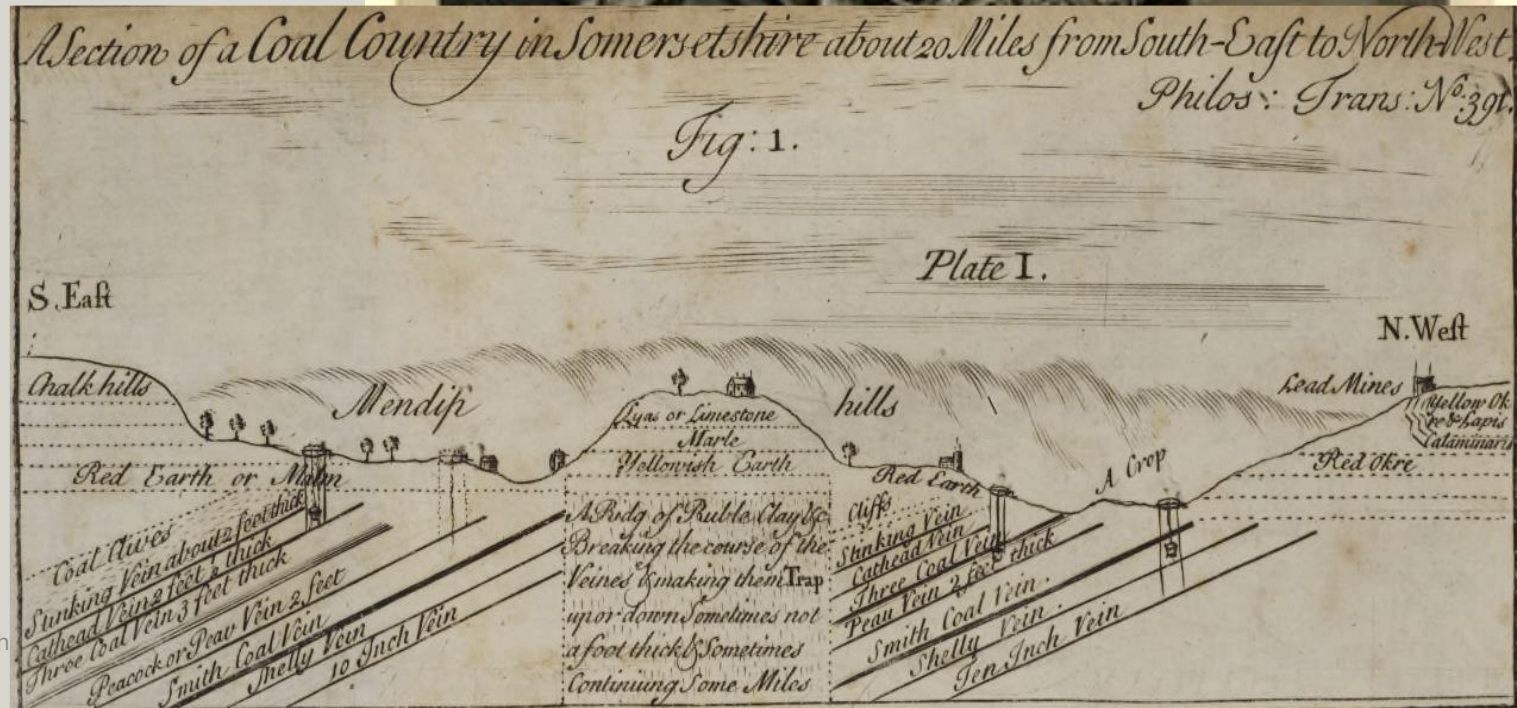 A Section of a Coal Country in Somersetshire about 20 Miles from South-East to North-West.
Philos: Trans: No. 391.
Fig: 1.
Plate I.
S. East
N. West
Chalk hills
Mendip
hills
Lead Mines
Yellow Ok
re & Lapis
Calaminaris
Lyas or Limestone
Marle
Yellowish Earth
Red Earth or Malm
Red Earth
A Crop
Red Okre
Coal Clives
Stinking Vein about 2 feet thick
Cathead Vein 2 feet ½ thick
Three Coal Vein 3 feet thick
Peacock or Peav Vein 2 feet
Smith Coal Vein
Shelly Vein
10 Inch Vein
A Ridg of Ruble Clay &c
Breaking the course of the
Veines & making them Trap
up or down Sometimes not
a foot thick & Sometimes
Continuing Some Miles
Cliffs
Stinking Vein
Cathead Vein
Three Coal Vein
Peau Vein 2 feet thick
Smith Coal Vein.
Shelly Vein.
Ten Inch Vein